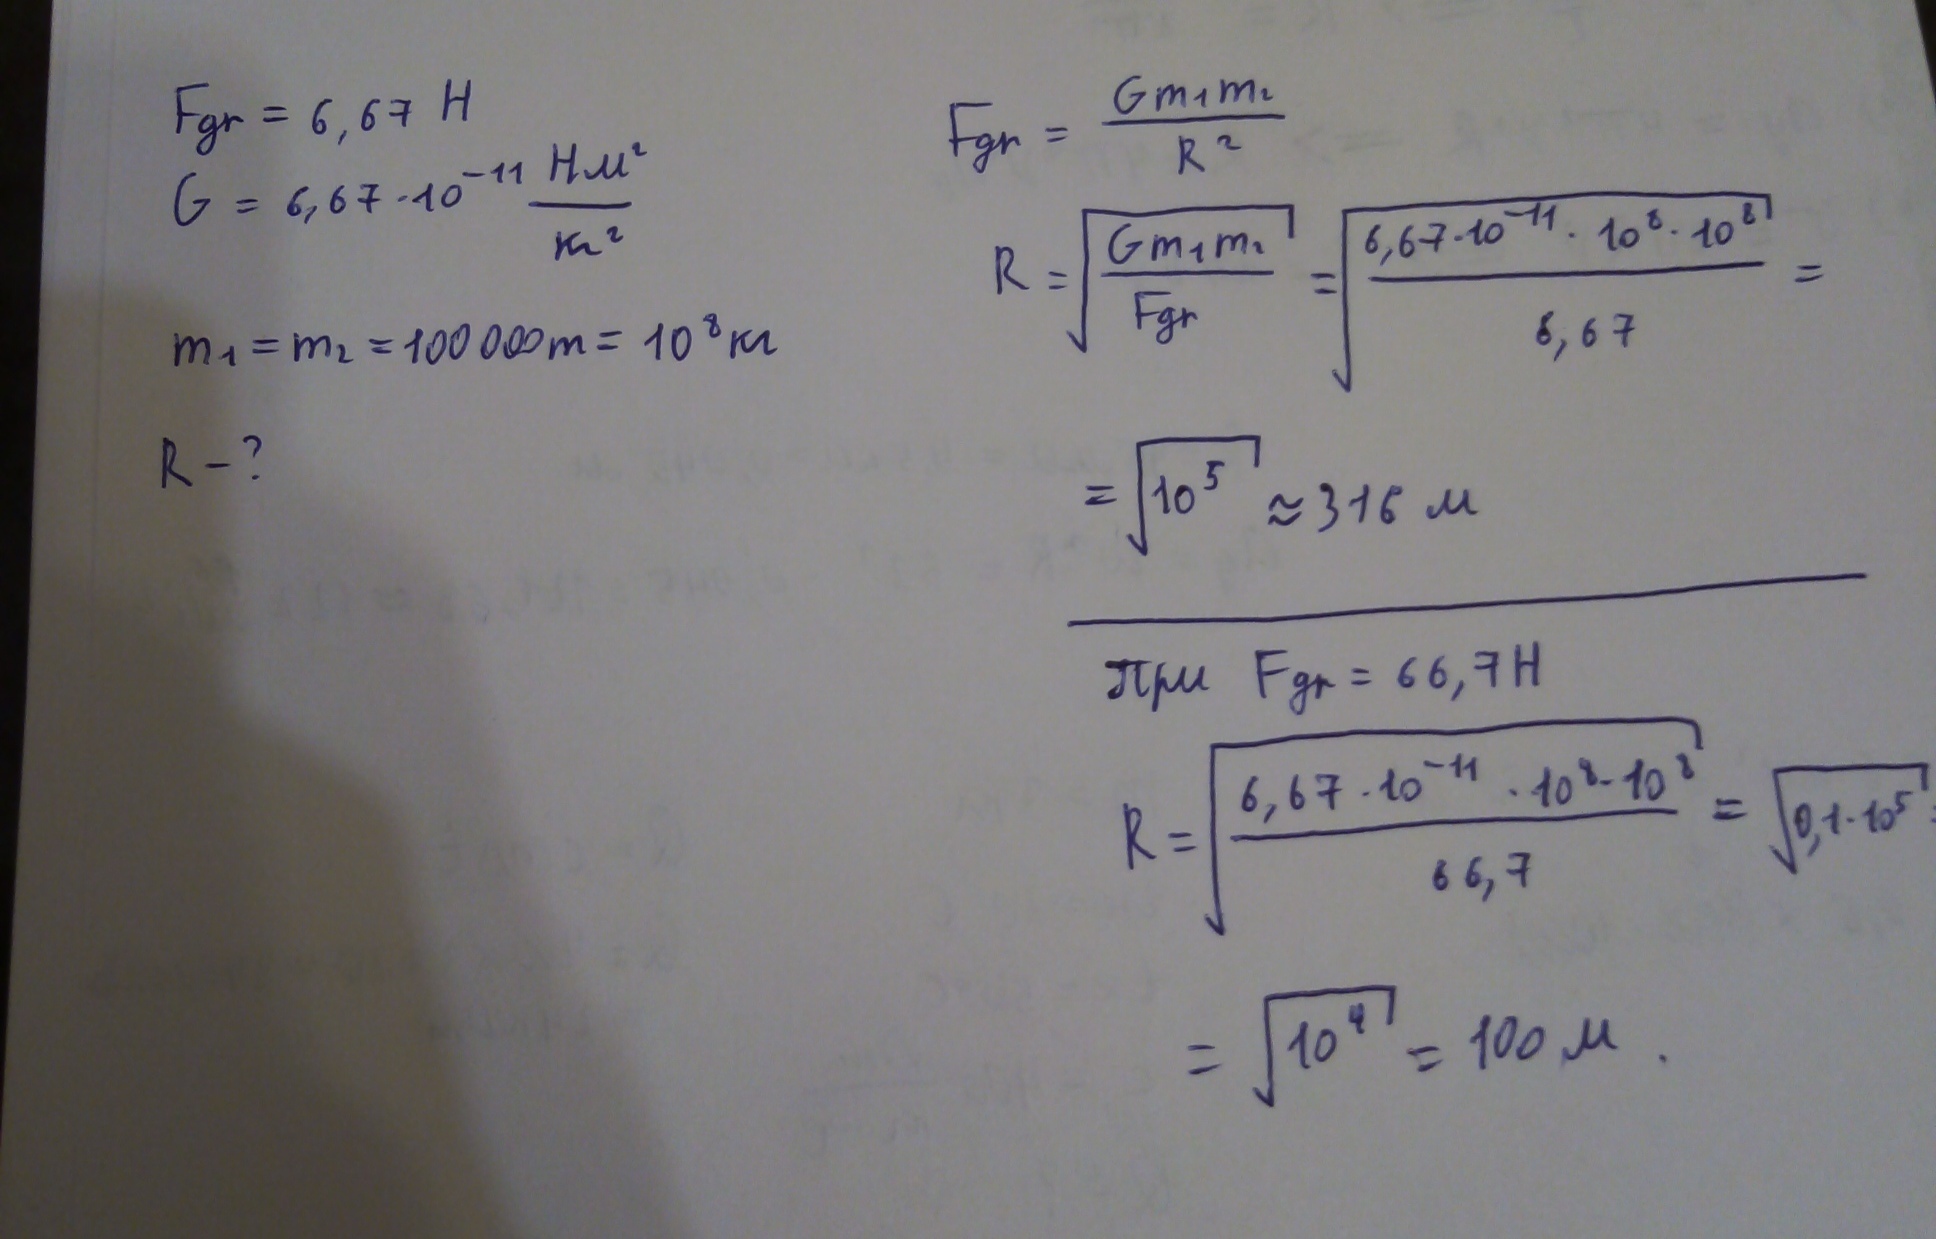 Fgr = 6,67 Н
G = 6,67·10⁻¹¹ Нм²/кг²
m₁ = m₂ = 100 000 т = 10⁸ кг
R – ?
Fgr = Gm₁m₂/R²
R = √(Gm₁m₂/Fgr) = √(6,67·10⁻¹¹·10⁸·10⁸/6,67) =
= √10⁵ ≈ 316 м
При Fgr = 66,7 Н
R = √(6,67·10⁻¹¹·10⁸·10⁸/66,7) = √(0,1·10⁵) =
= √10⁴ = 100 м.